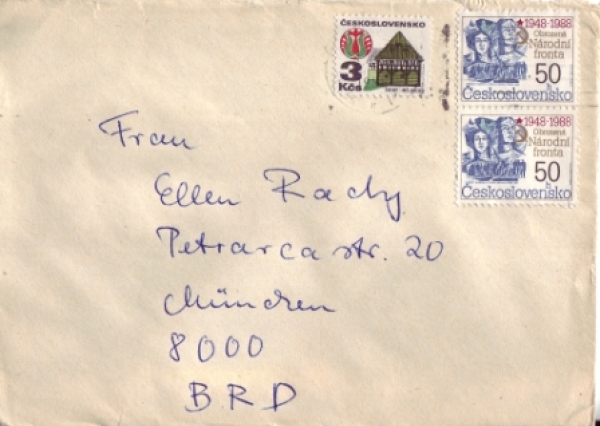 ČESKOSLOVENSKO
3
Kčs
★1948-1988
Obrozená
Národní
fronta
50
h
Československo
★1948-1988
Obrozená
Národní
fronta
50
h
Československo
Frau
Ellen Rady
Petrarcastr. 20
München
8000
BRD